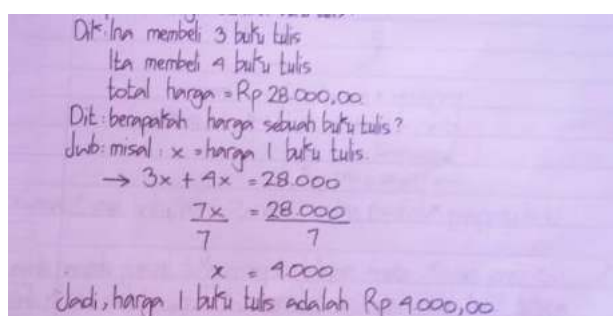 Dik: Ina membeli 3 buku tulis
Ita membeli 4 buku tulis
total harga = Rp 28.000,00
Dit: berapakah harga sebuah buku tulis?
Jwb: misal: x = harga 1 buku tulis.
→ 3x + 4x = 28.000
7x = 28.000
7 7
x = 4.000
Jadi, harga 1 buku tulis adalah Rp 4.000,00